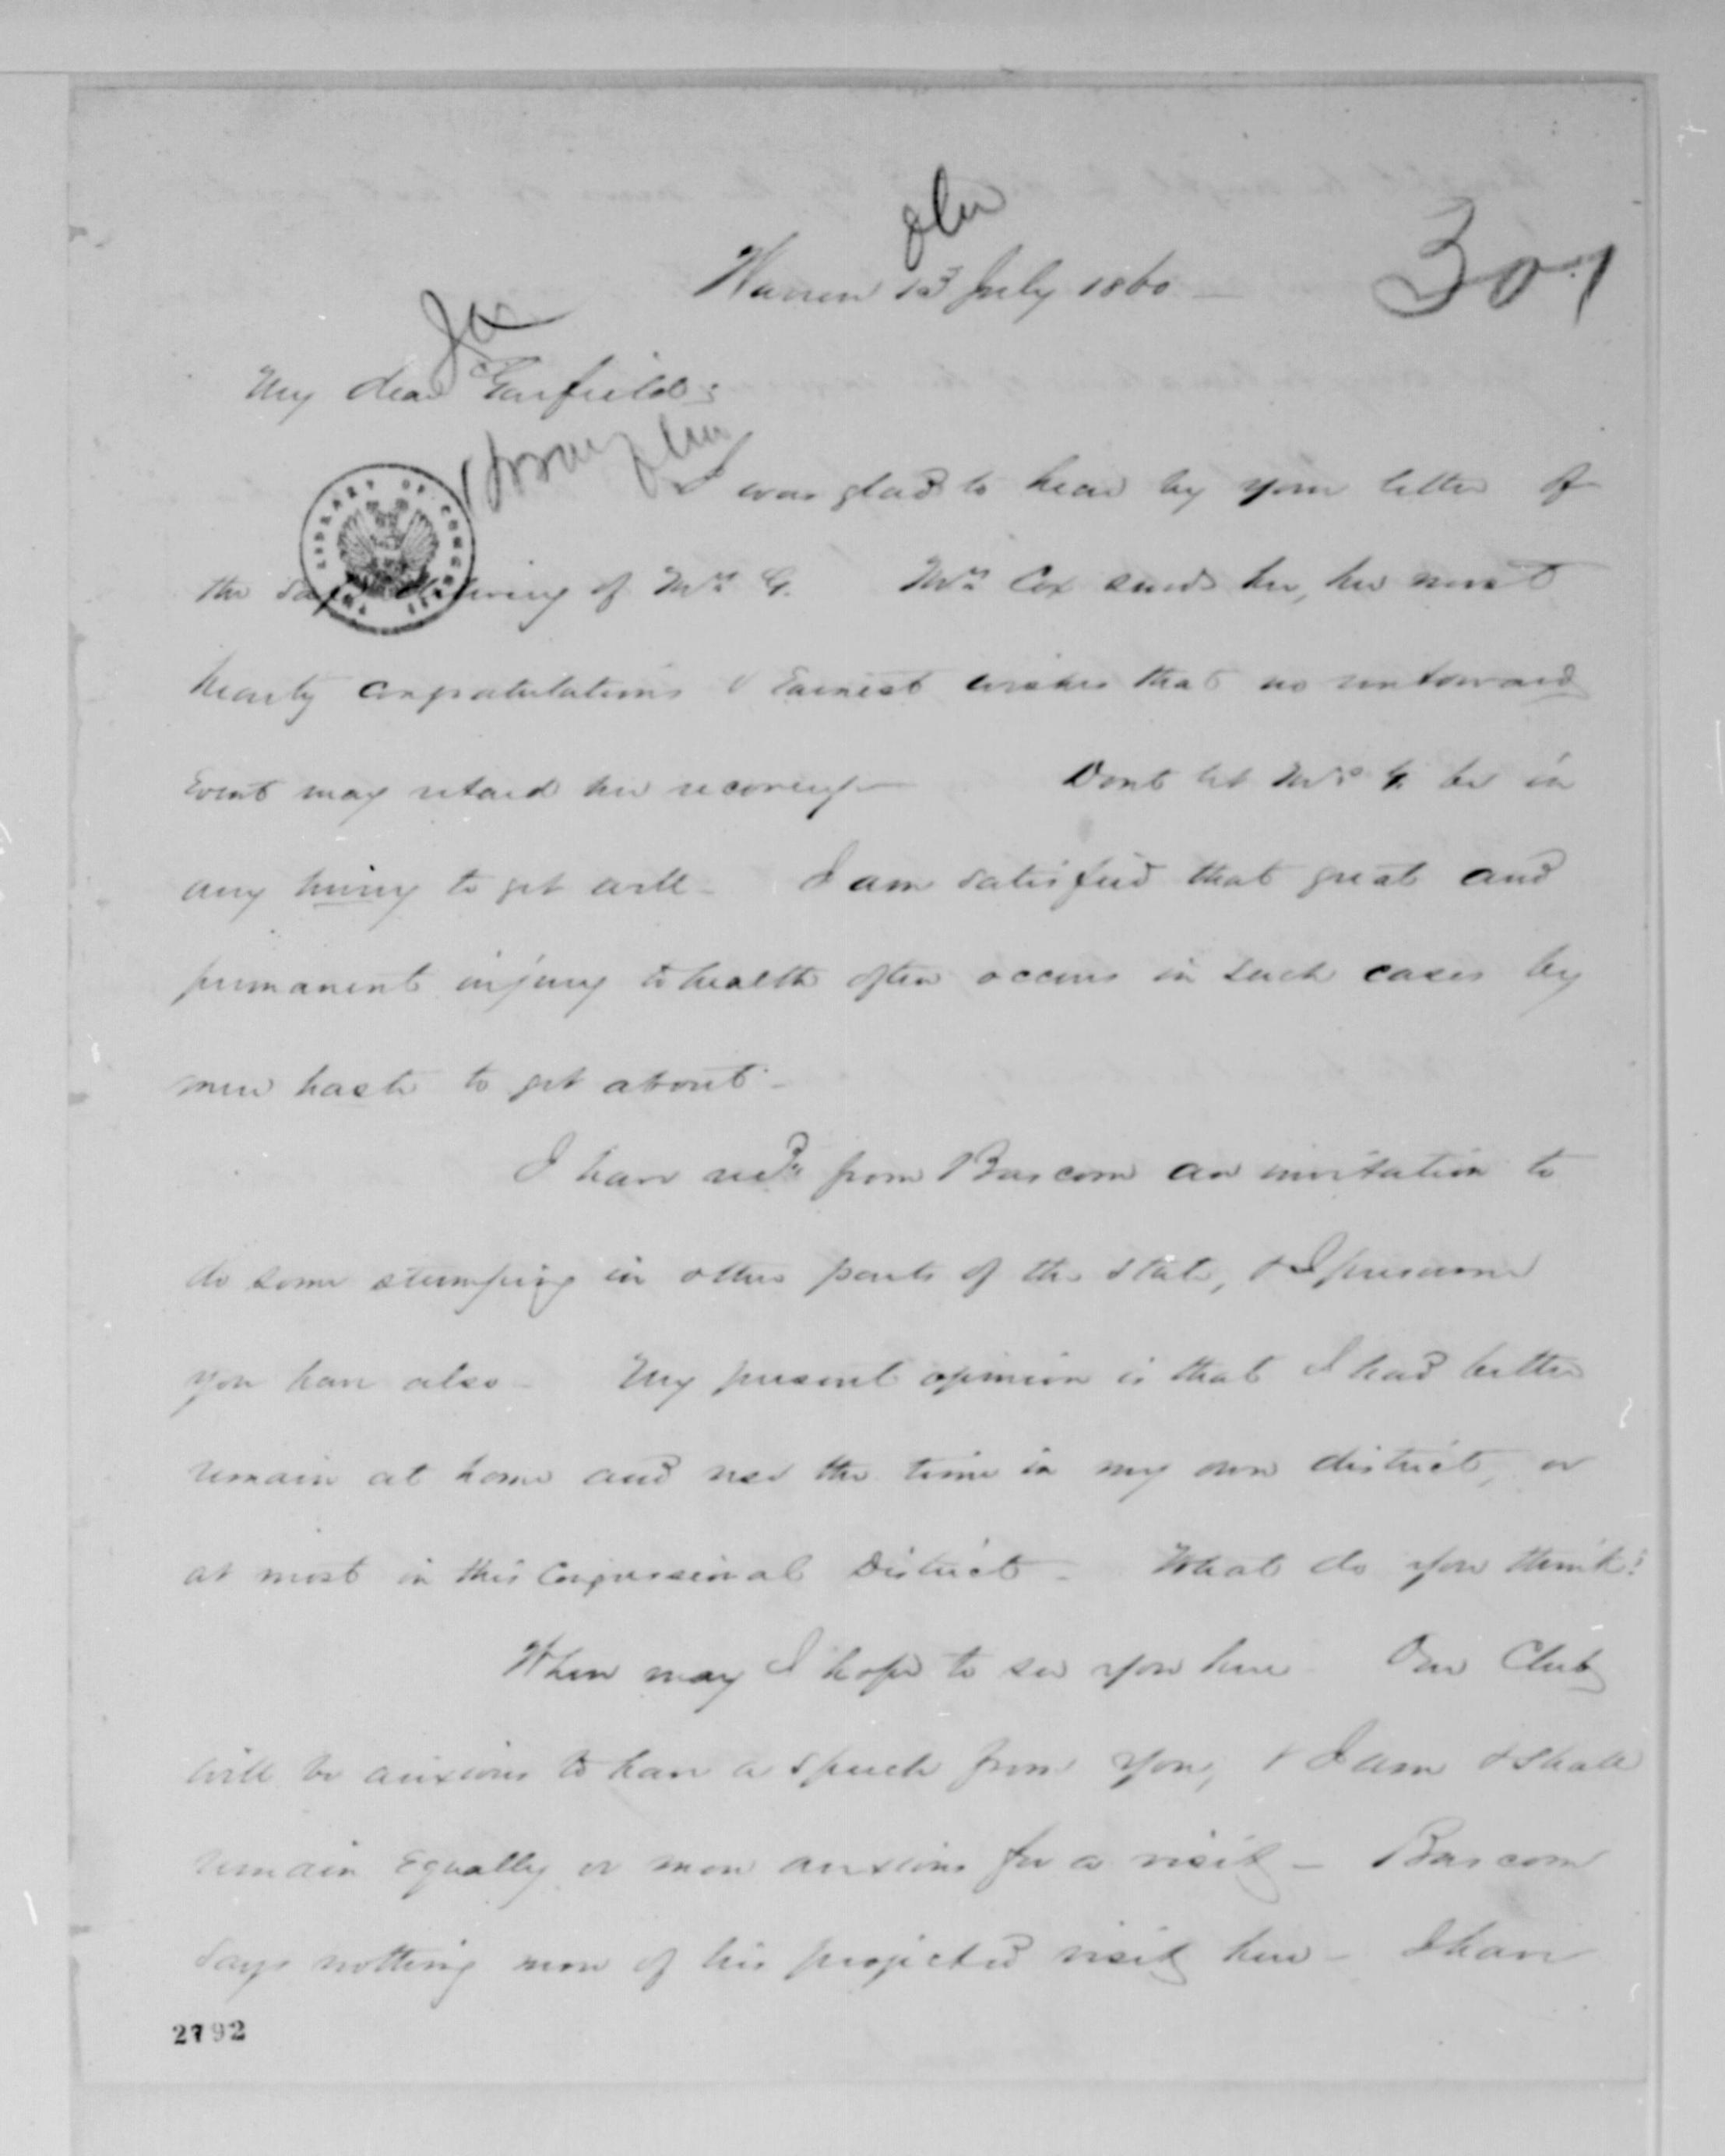 Ohio
Warren 13 July 1860 —
307
Ja
My dear Garfield:
I was glad to hear by your letter of
the safe delivery of Mrs G. Mrs Cox sends her, her most
hearty congratulations & earnest wishes that no untoward
event may retard her recovery — Dont let Mrs G be in
any hurry to get well — I am satisfied that great and
permanent injury to health often occurs in such cases by
mere haste to get about —
I have recd from Bascom an invitation to
do some stumping in other parts of the state, & I presume
you have also — My present opinion is that I had better
remain at home and use the time in my own district, or
at most in this Congressional District — What do you think?
When may I hope to see you here Our Club
will be anxious to have a speech from you, & I am & shall
remain equally or more anxious for a visit — Bascom
says nothing more of his projected visit here — I have
LIBRARY OF CONGRESS
2792